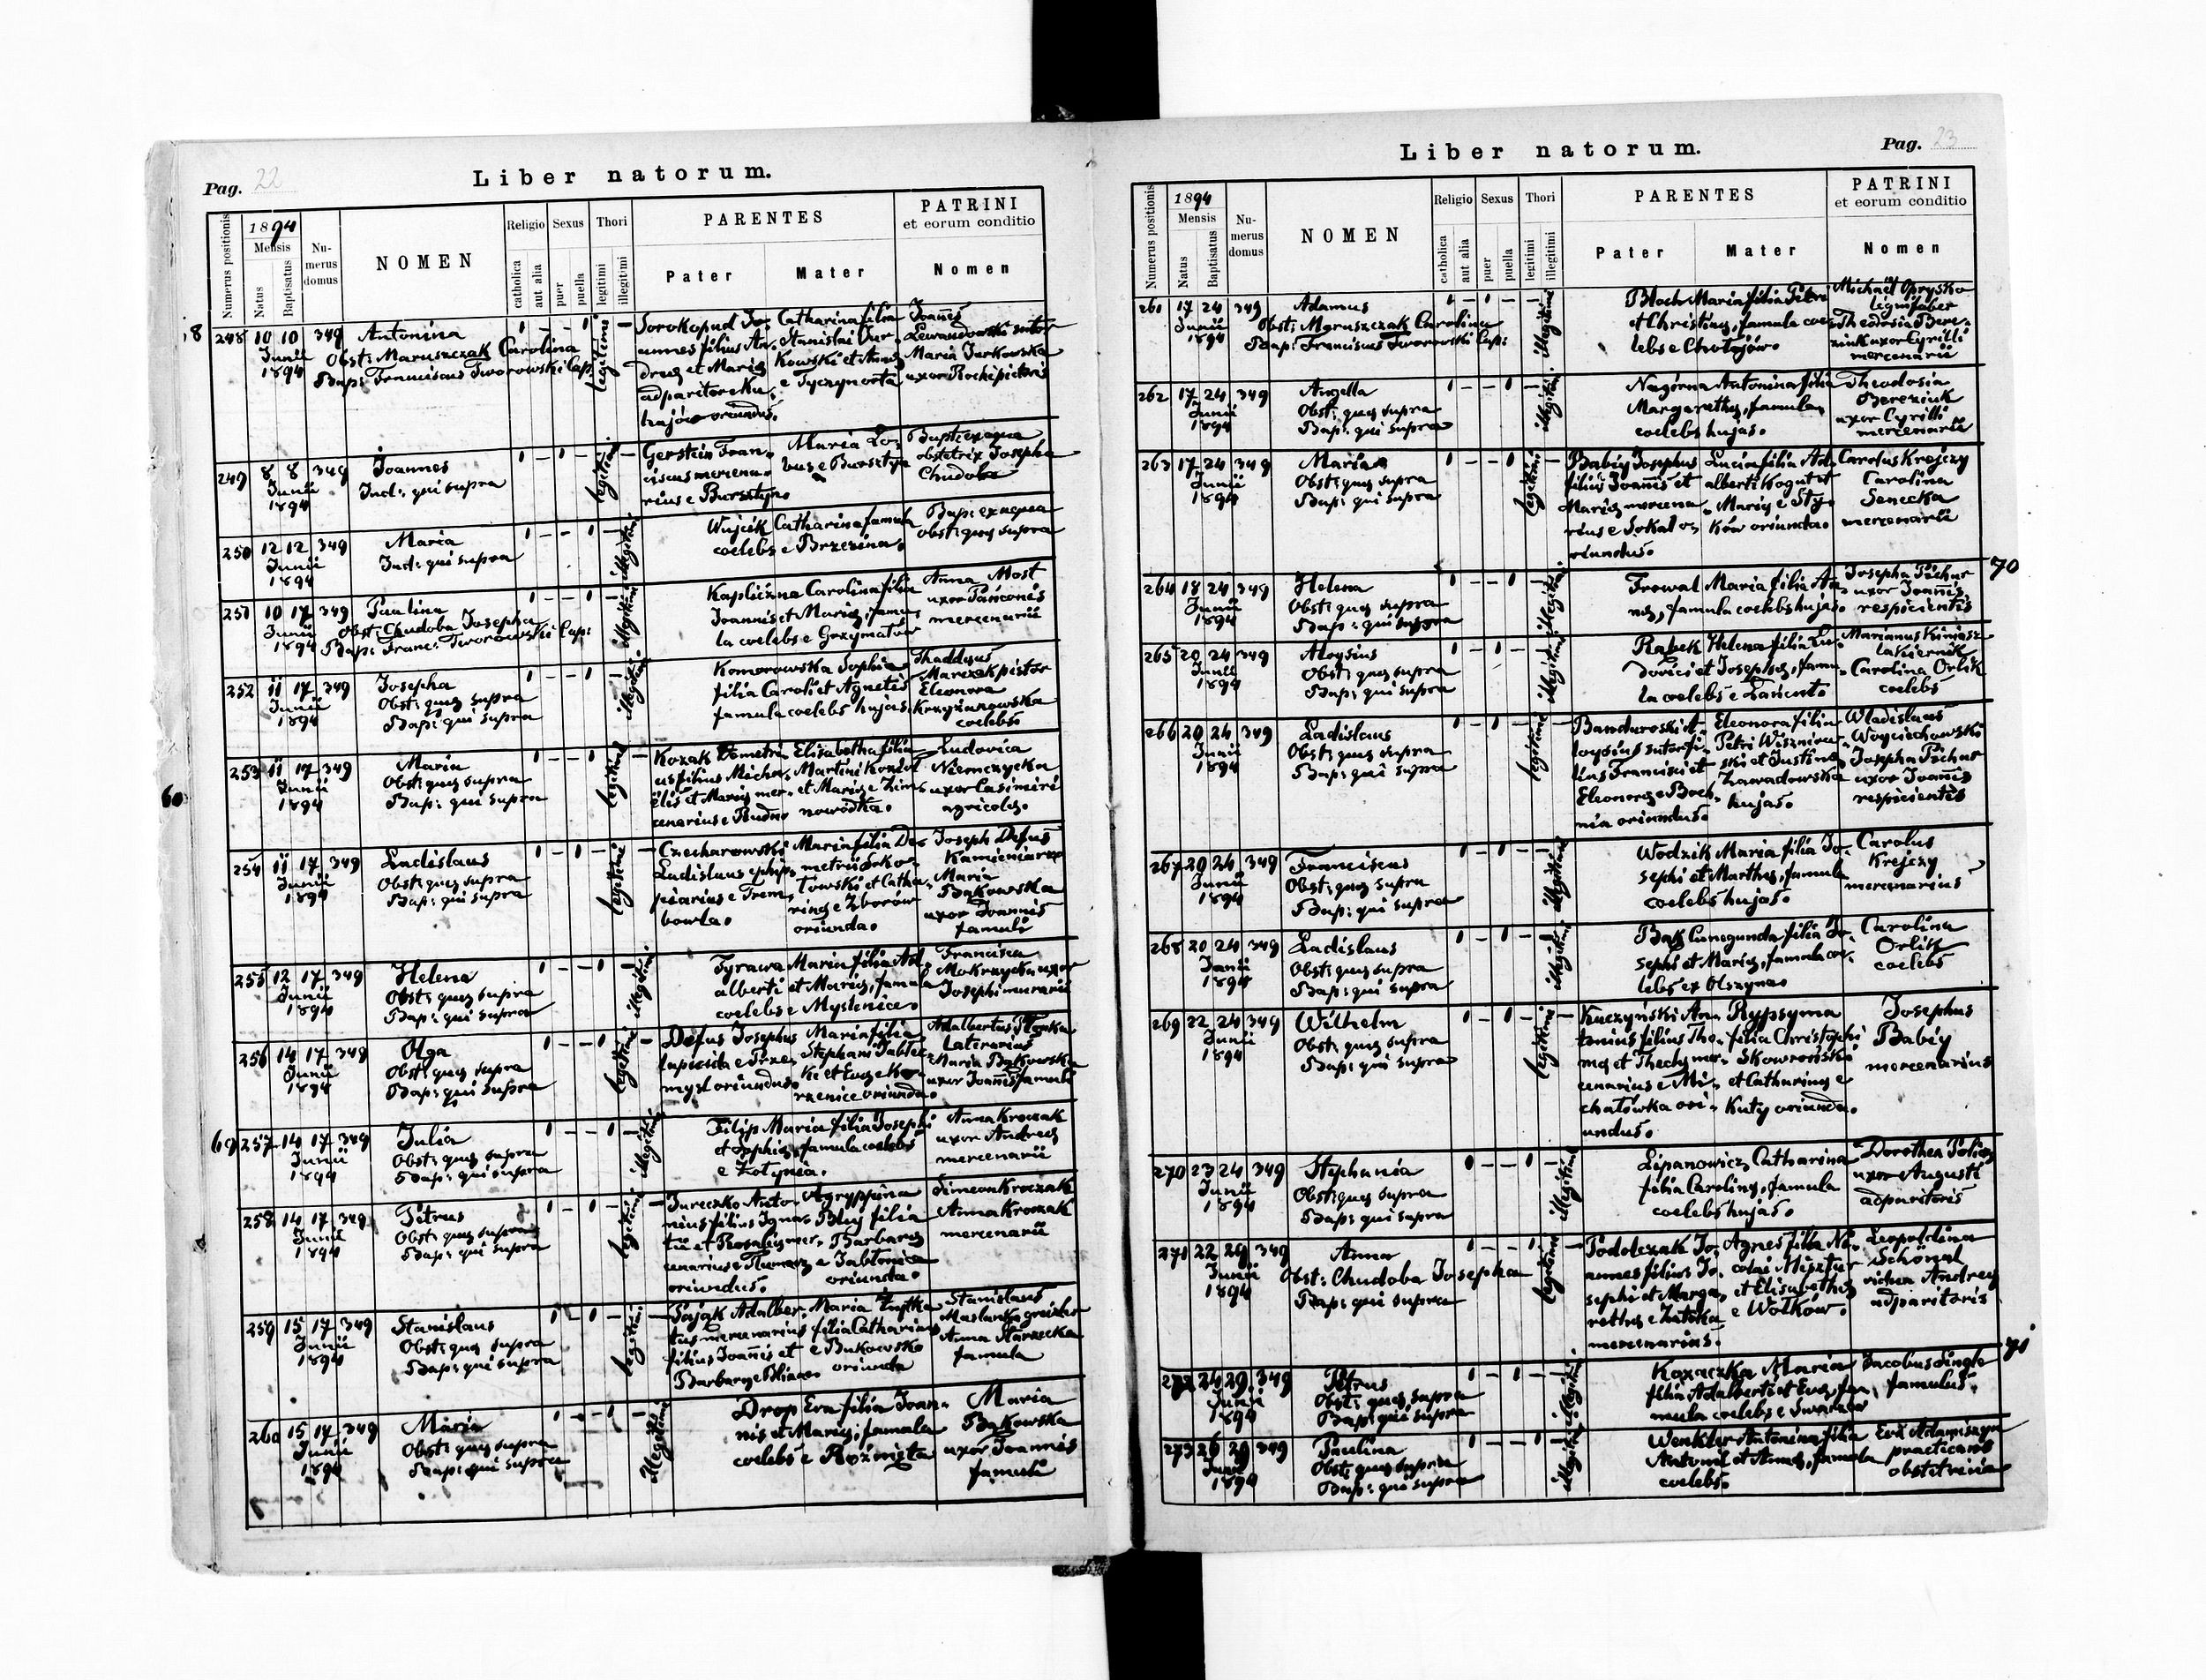 Pag. 22
Liber natorum.
Numerus positionis
1894
Mensis
Natus
Baptisatus
Nu-
merus
domus
NOMEN
Religio
catholica
aut alia
Sexus
puer
puella
Thori
legitimi
illegitimi
PARENTES
Pater
Mater
PATRINI
et eorum conditio
Nomen
248 10 10 349 Antonina
Junii
1894
Obst: Maruszczak Carolina
Bap: Franciscus Tworowski Cap:
legitimi
Catharina filia
Stanislai
Kowski et
Joannes
Lewandowski sutor
Maria Jurkowska
uxor Rochi pictoris
249 8 8 349 Joannes
Junii
1894
Ind: qui supra
legitimi
Gerstein Fran-
ciscus mercena-
rius e Bursztyn
Maria
Bapt: ex aqua
obstetrix Josepha
Chudoba
250 12 12 349 Maria
Junii
1894
Ind: qui supra
illegitimi
Wujcik Catharina famula
coelebs e Brzezina
Bap: ex aqua
obst: quae supra
251 10 17 349 Paulina
Junii
1894
Obst: Chudoba Josepha
Bap: Franc: Tworowski Cap:
illegitimi
Kapliczna Carolina filia
Joannis et Mariae, famu-
la coelebs e Grzymałów
Anna Most
uxor
mercenarii
252 11 17 349 Josepha
Junii
1894
Obst: quae supra
Bap: qui supra
illegitimi
Komorowska Sophia
filia Caroli et Agnetis
famula coelebs hujas.
Thaddeus
Marexx pistor
Eleonora
Krzyżanowska
coelebs
60
253 11 17 349 Maria
Junii
1894
Obst: quae supra
Bap: qui supra
legitimi
Kozak Demetri-
us filius Micha-
elis et Mariae mer-
cenarius e Rudno
Elisabetha filia
Martini
et Mariae e Zim-
nowodka.
Ludovica
Niemczycka
uxor Casimiri
agricolae.
254 11 17 349 Ladislaus
Junii
1894
Obst: quae supra
Bap: qui supra
legitimi
Czecharowski
Ladislaus ephip-
piarius e Trem-
bowla.
Maria filia De-
metrii Soko-
łowski et Catha-
rinae e Zborów
oriunda.
Joseph Defus
Kamieniarz
Maria
Bakowska
uxor Joannis
famuli
255 12 17 349 Helena
Junii
1894
Obst: quae supra
Bap: qui supra
illegitimi
Tyrawa Maria filia Ad-
alberti et Mariae, famula
coelebs e Myslenice.
Francisca
Mokrzycka uxor
Josephi murarii
256 14 17 349 Olga
Junii
1894
Obst: quae supra
Bap: qui supra
legitimi
Defus Josephus
lapicida e Prze-
mysl oriundus.
Maria filia
Stephani Jabłec-
ki et Evae e Ko-
rzenice oriunda.
Adalbertus
Laterarius
Maria Bakowska
uxor Joannis famuli
69
257 14 17 349 Julia
Junii
1894
Obst: quae supra
Bap: qui supra
illegitimi
Filip Maria filia Josephi
et Sophiae, famula coelebs
e Żołynia.
Anna Kroczak
uxor Andreae
mercenarii
258 14 17 349 Petrus
Junii
1894
Obst: quae supra
Bap: qui supra
legitimi
Jureczko Anto-
nius filius Igna-
tii et Rosaliae mer-
cenarius e Tłumacz
oriundus.
Agryppina
filia
Barbarae
e Jabłonica
oriunda.
Simeon Kroczak
Anna Kroczak
mercenarii
259 15 17 349 Stanislaus
Junii
1894
Obst: quae supra
Bap: qui supra
legitimi
Pająk Adalber-
tus mercenarius
filius Joannis et
Barbarae e
Maria
filia Catharinae
e Bukowsko
oriunda
Stanislaus
Maslanka
Anna Harzecka
famula
260 15 17 349 Maria
Junii
1894
Obst: quae supra
Bap: qui supra
illegitimi
Drop Eva filia Joan-
nis et Mariae, famula
coelebs e
Maria
Bakowska
uxor Joannis
famuli
Liber natorum.
Pag. 23
Numerus positionis
1894
Mensis
Natus
Baptisatus
Nu-
merus
domus
NOMEN
Religio
catholica
aut alia
Sexus
puer
puella
Thori
legitimi
illegitimi
PARENTES
Pater
Mater
PATRINI
et eorum conditio
Nomen
261 17 24 349 Adamus
Junii
1894
Obst: Maruszczak Carolina
Bap: Franciscus Tworowski Cap:
illegitimi
Bloch Maria filia Petri
et Christinae, famula coe-
lebs e Chołojów.
Michael Oprysko
lignifaber
Theodosia Bere-
ziuk uxor Cyrilli
mercenarii
262 17 24 349 Angella
Junii
1894
Obst: quae supra
Bap: qui supra
illegitimi
Nagórna Antonina filia
Margarethae, famula
coelebs hujas.
Theodosia
Bereziuk
uxor Cyrilli
mercenarii
263 17 24 349 Maria
Junii
1894
Obst: quae supra
Bap: qui supra
legitimi
Babiy Josephus
filius Joannis et
Mariae mercena-
rius e Sokal o-
riundus.
Lucia filia Ad-
alberti Kogut et
Mariae e Sty-
ków oriunda.
Carolus Krejczy
Carolina
Senecka
mercenarii
70
264 18 24 349 Helena
Junii
1894
Obst: quae supra
Bap: qui supra
illegitimi
Trowal Maria filia An-
nae, famula coelebs hujas.
Josepha Pichur
uxor Joannis
respicientis
265 20 24 349 Aloysius
Junii
1894
Obst: quae supra
Bap: qui supra
illegitimi
Rabek Helena filia Lu-
dovici et Josephae, famu-
la coelebs e Łańcut.
Marianus
lakiernik
Carolina Orlik
coelebs
266 20 24 349 Ladislaus
Junii
1894
Obst: quae supra
Bap: qui supra
legitimi
Bandurowski A-
loysius sutor fi-
lius Francisci et
Eleonorae e Boch-
nia oriundus.
Eleonora filia
Petri Wiszniew-
ski et Justinae
Zawadowska
hujas.
Wladislaus
Woyciechowski
Josepha Pichur
uxor Joannis
respicientis
267 20 24 349 Franciscus
Junii
1894
Obst: quae supra
Bap: qui supra
illegitimi
Wodzik Maria filia Jo-
sephi et Marthae, famula
coelebs hujas.
Carolus
Krejczy
mercenarius
268 20 24 349 Ladislaus
Junii
1894
Obst: quae supra
Bap: qui supra
illegitimi
Bak Cunegunda filia Jo-
sephi et Mariae, famula coe-
lebs ex Olszyna.
Carolina
Orlik
coelebs
269 22 24 349 Wilhelm
Junii
1894
Obst: quae supra
Bap: qui supra
legitimi
Kuczyński An-
tonius filius Tho-
mae et Theclae mer-
cenarius e Mi-
chałówka ori-
undus.
Rypsyma
filia Christophi
Skowroński
et Catharinae e
Kuty oriunda.
Josephus
Babiy
mercenarius
270 23 24 349 Stephania
Junii
1894
Obst: quae supra
Bap: qui supra
illegitimi
Lipanowicz Catharina
filia Carolinae, famula
coelebs hujas.
Dorothea
uxor Augusti
adparitoris
271 22 29 349 Anna
Junii
1894
Obst: Chudoba Josepha
Bap: qui supra
legitimi
Podolczak Jo-
annes filius Jo-
sephi et Marga-
rethae e
mercenarius.
Agnes filia Ni-
colai
et Elisabethae
e Wołków.
Leopoldina
vidua Andreae
adparitoris
71
272 24 29 349 Petrus
Junii
1894
Obst: quae supra
Bap: qui supra
illegitimi
Kozaczka Maria
filia Adalberti et Evae, fa-
mula coelebs e
Jacobus Single
famulus
273 26 29 349 Paulina
Junii
1894
Obst: quae supra
Bap: qui supra
illegitimi
Wenkler Antonina filia
Antonii et Annae, famula
coelebs.
Eva
practicans
obstetricia